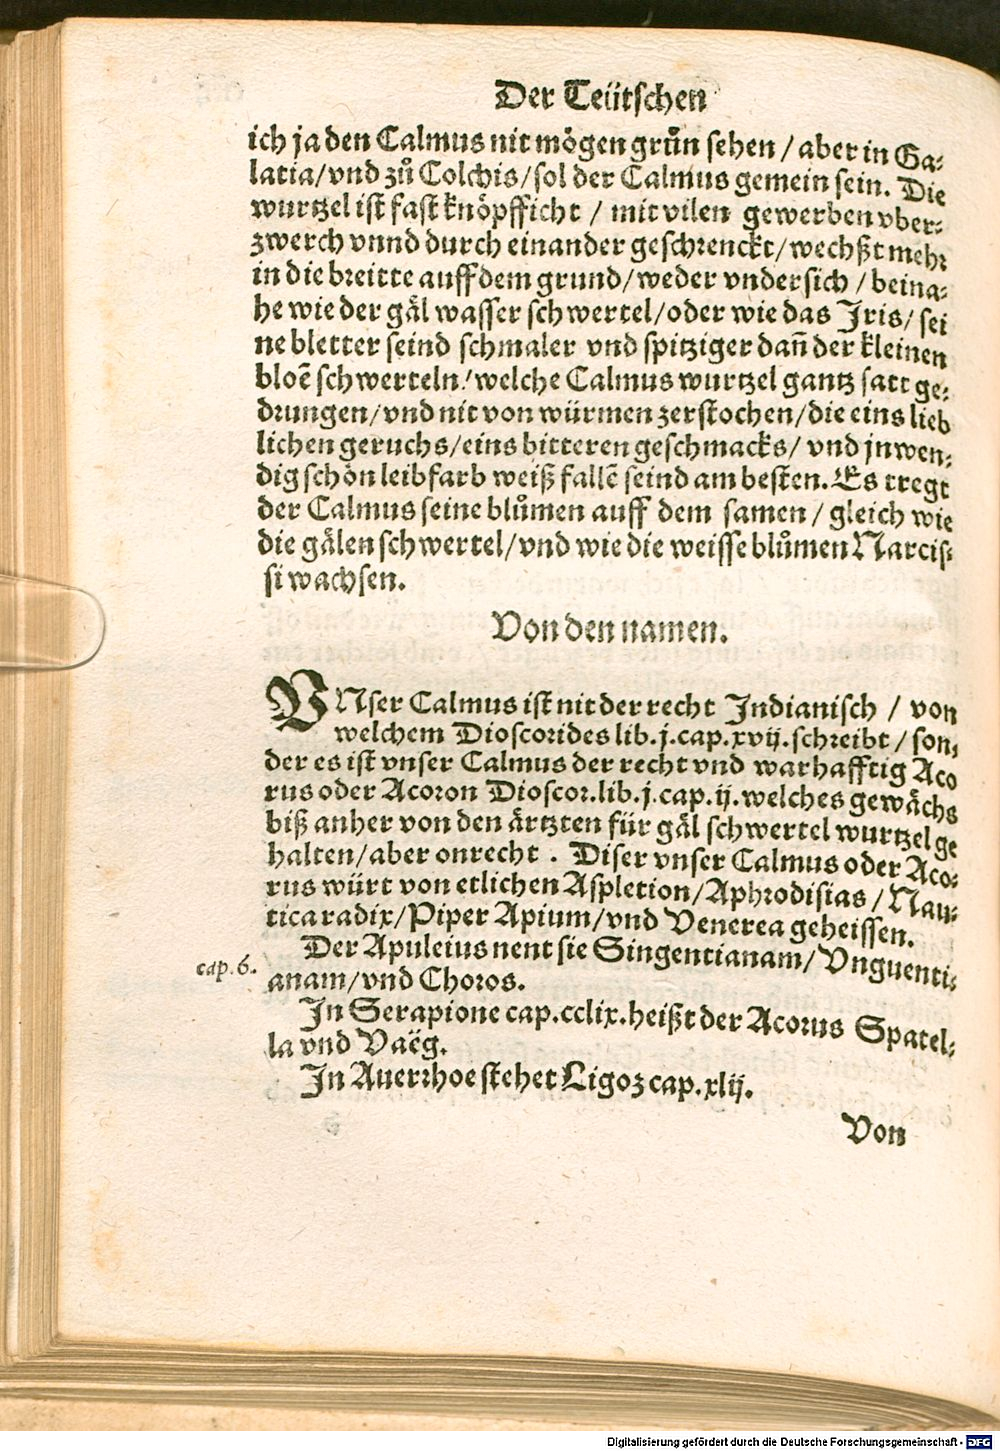 Der Teütschen
ich ja den Calmus nit mögen grün sehen / aber in Ga-
latia/vnd zů Colchis/sol der Calmus gemein sein. Die
wurtzel ist fast knöpfficht / mit vilen gewerben vber-
zwerch vnnd durch einander geschrenckt/wechßt mehr
in die breitte auff dem grund/weder vndersich / beina-
he wie der gäl wasser schwertel/oder wie das Iris/ sei
ne bletter seind schmaler vnd spitziger dañ der kleinen
bloẽ schwerteln/welche Calmus wurtzel gantz satt ge-
drungen/vnd nit von würmen zerstochen/die eins lieb
lichen geruchs/eins bitteren geschmacks/ vnd jnwen-
dig schön leibfarb weiß fallẽ seind am besten. Es tregt
der Calmus seine blůmen auff dem samen / gleich wie
die gälen schwertel/vnd wie die weisse blůmen Narcis-
si wachsen.
Von den namen.
VNser Calmus ist nit der recht Indianisch / von
welchem Dioscorides lib.j.cap.xvij.schreibt / son-
der es ist vnser Calmus der recht vnd warhafftig Aco
rus oder Acoron Dioscor.lib.j.cap.ij.welches gewächs
biß anher von den ärtzten für gäl schwertel wurtzel ge
halten/aber onrecht . Diser vnser Calmus oder Aco-
rus würt von etlichen Aspletion/Aphrodisias / Nau-
tica radix/Piper Apium/vnd Venerea geheissen.
Der Apuleius nent sie Singentianam/ Vnguenti-
cap.6.
anam/vnd Choros.
In Serapione cap.cclix.heißt der Acorus Spatel-
la vnd Vaëg.
In Auerrhoe stehet Ligoz cap.xlij.
Von
Digitalisierung gefördert durch die Deutsche Forschungsgemeinschaft - DFG